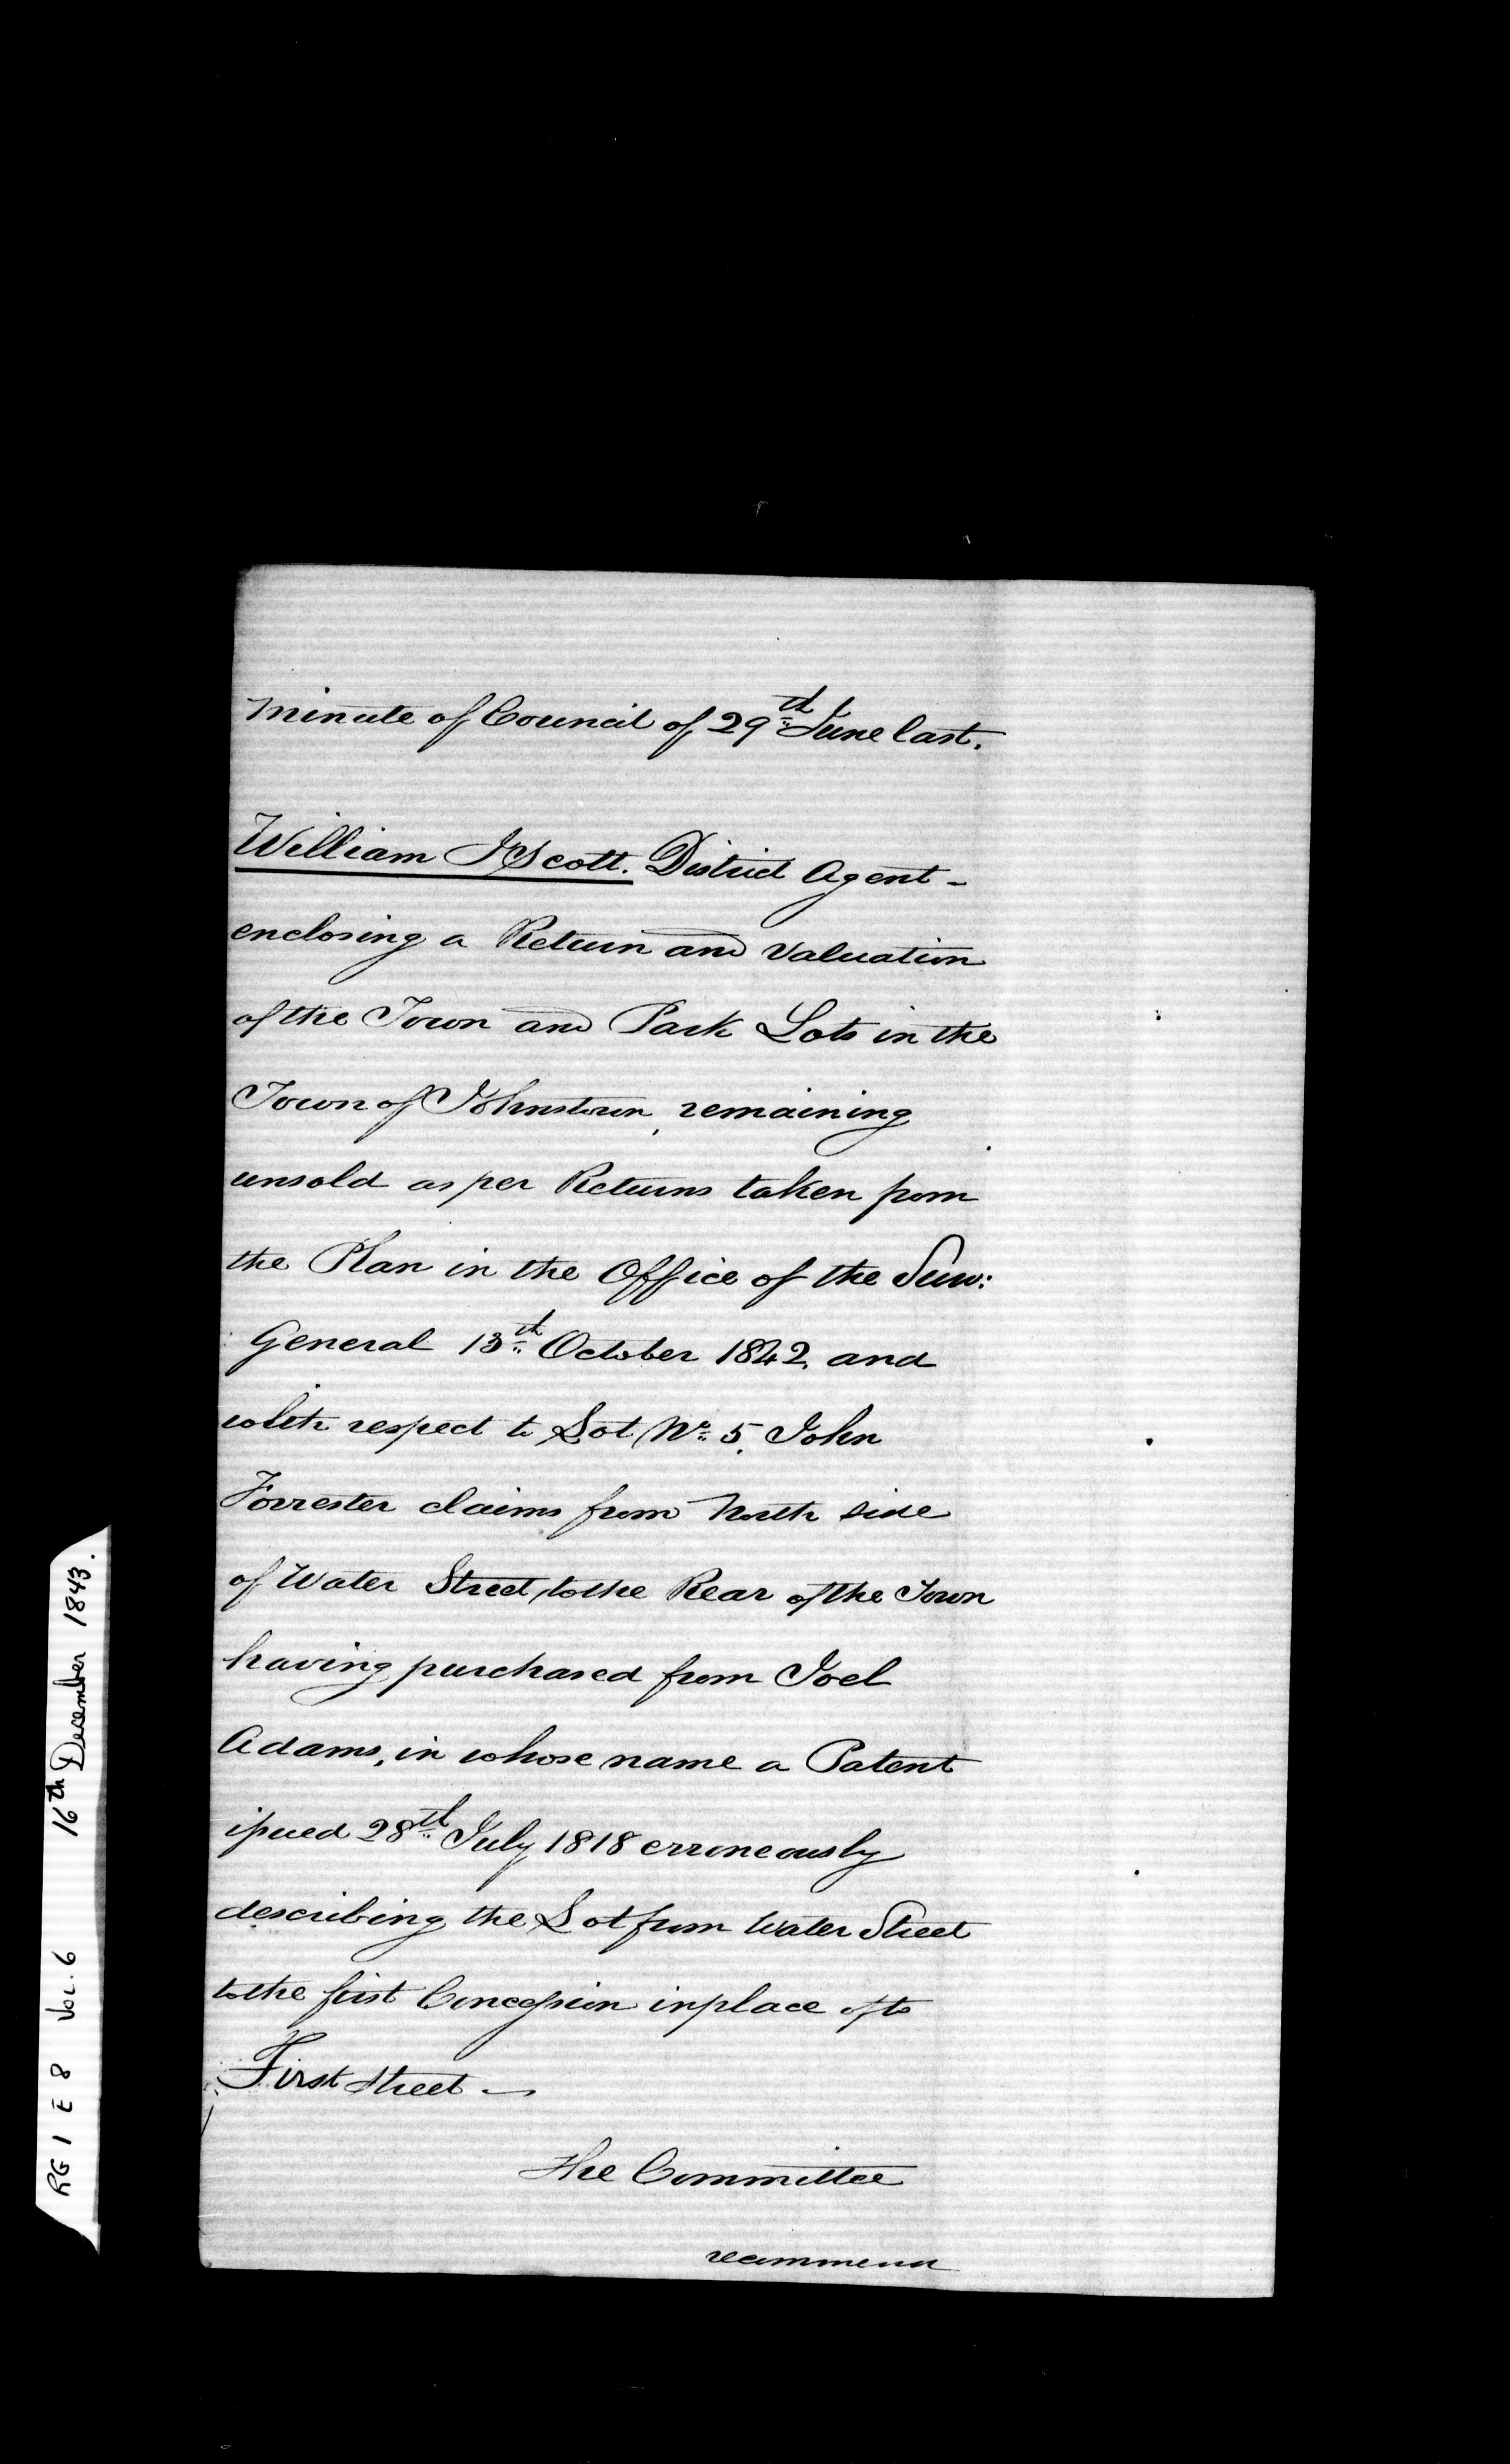 Minute of Council of 29th June last.
William J Scott. District Agent -
enclosing a Return and Valuation
of the Town and Park Lots in the
Town of Johnstown, remaining
unsold as per Returns taken from
the Plan in the Office of the Surv:
General 13th October 1842, and
with respect to Lot No. 5, John
Forrester claims from North side
of Water Street, to the Rear of the Town
having purchased from Joel
Adams, in whose name a Patent
issued 28th July 1818 erroneously
describing the Lot from Water Street
to the first Concession in place of to
First Street —
The Committee
recommend
RG 1 E 8 Vol. 6 16th December 1843.